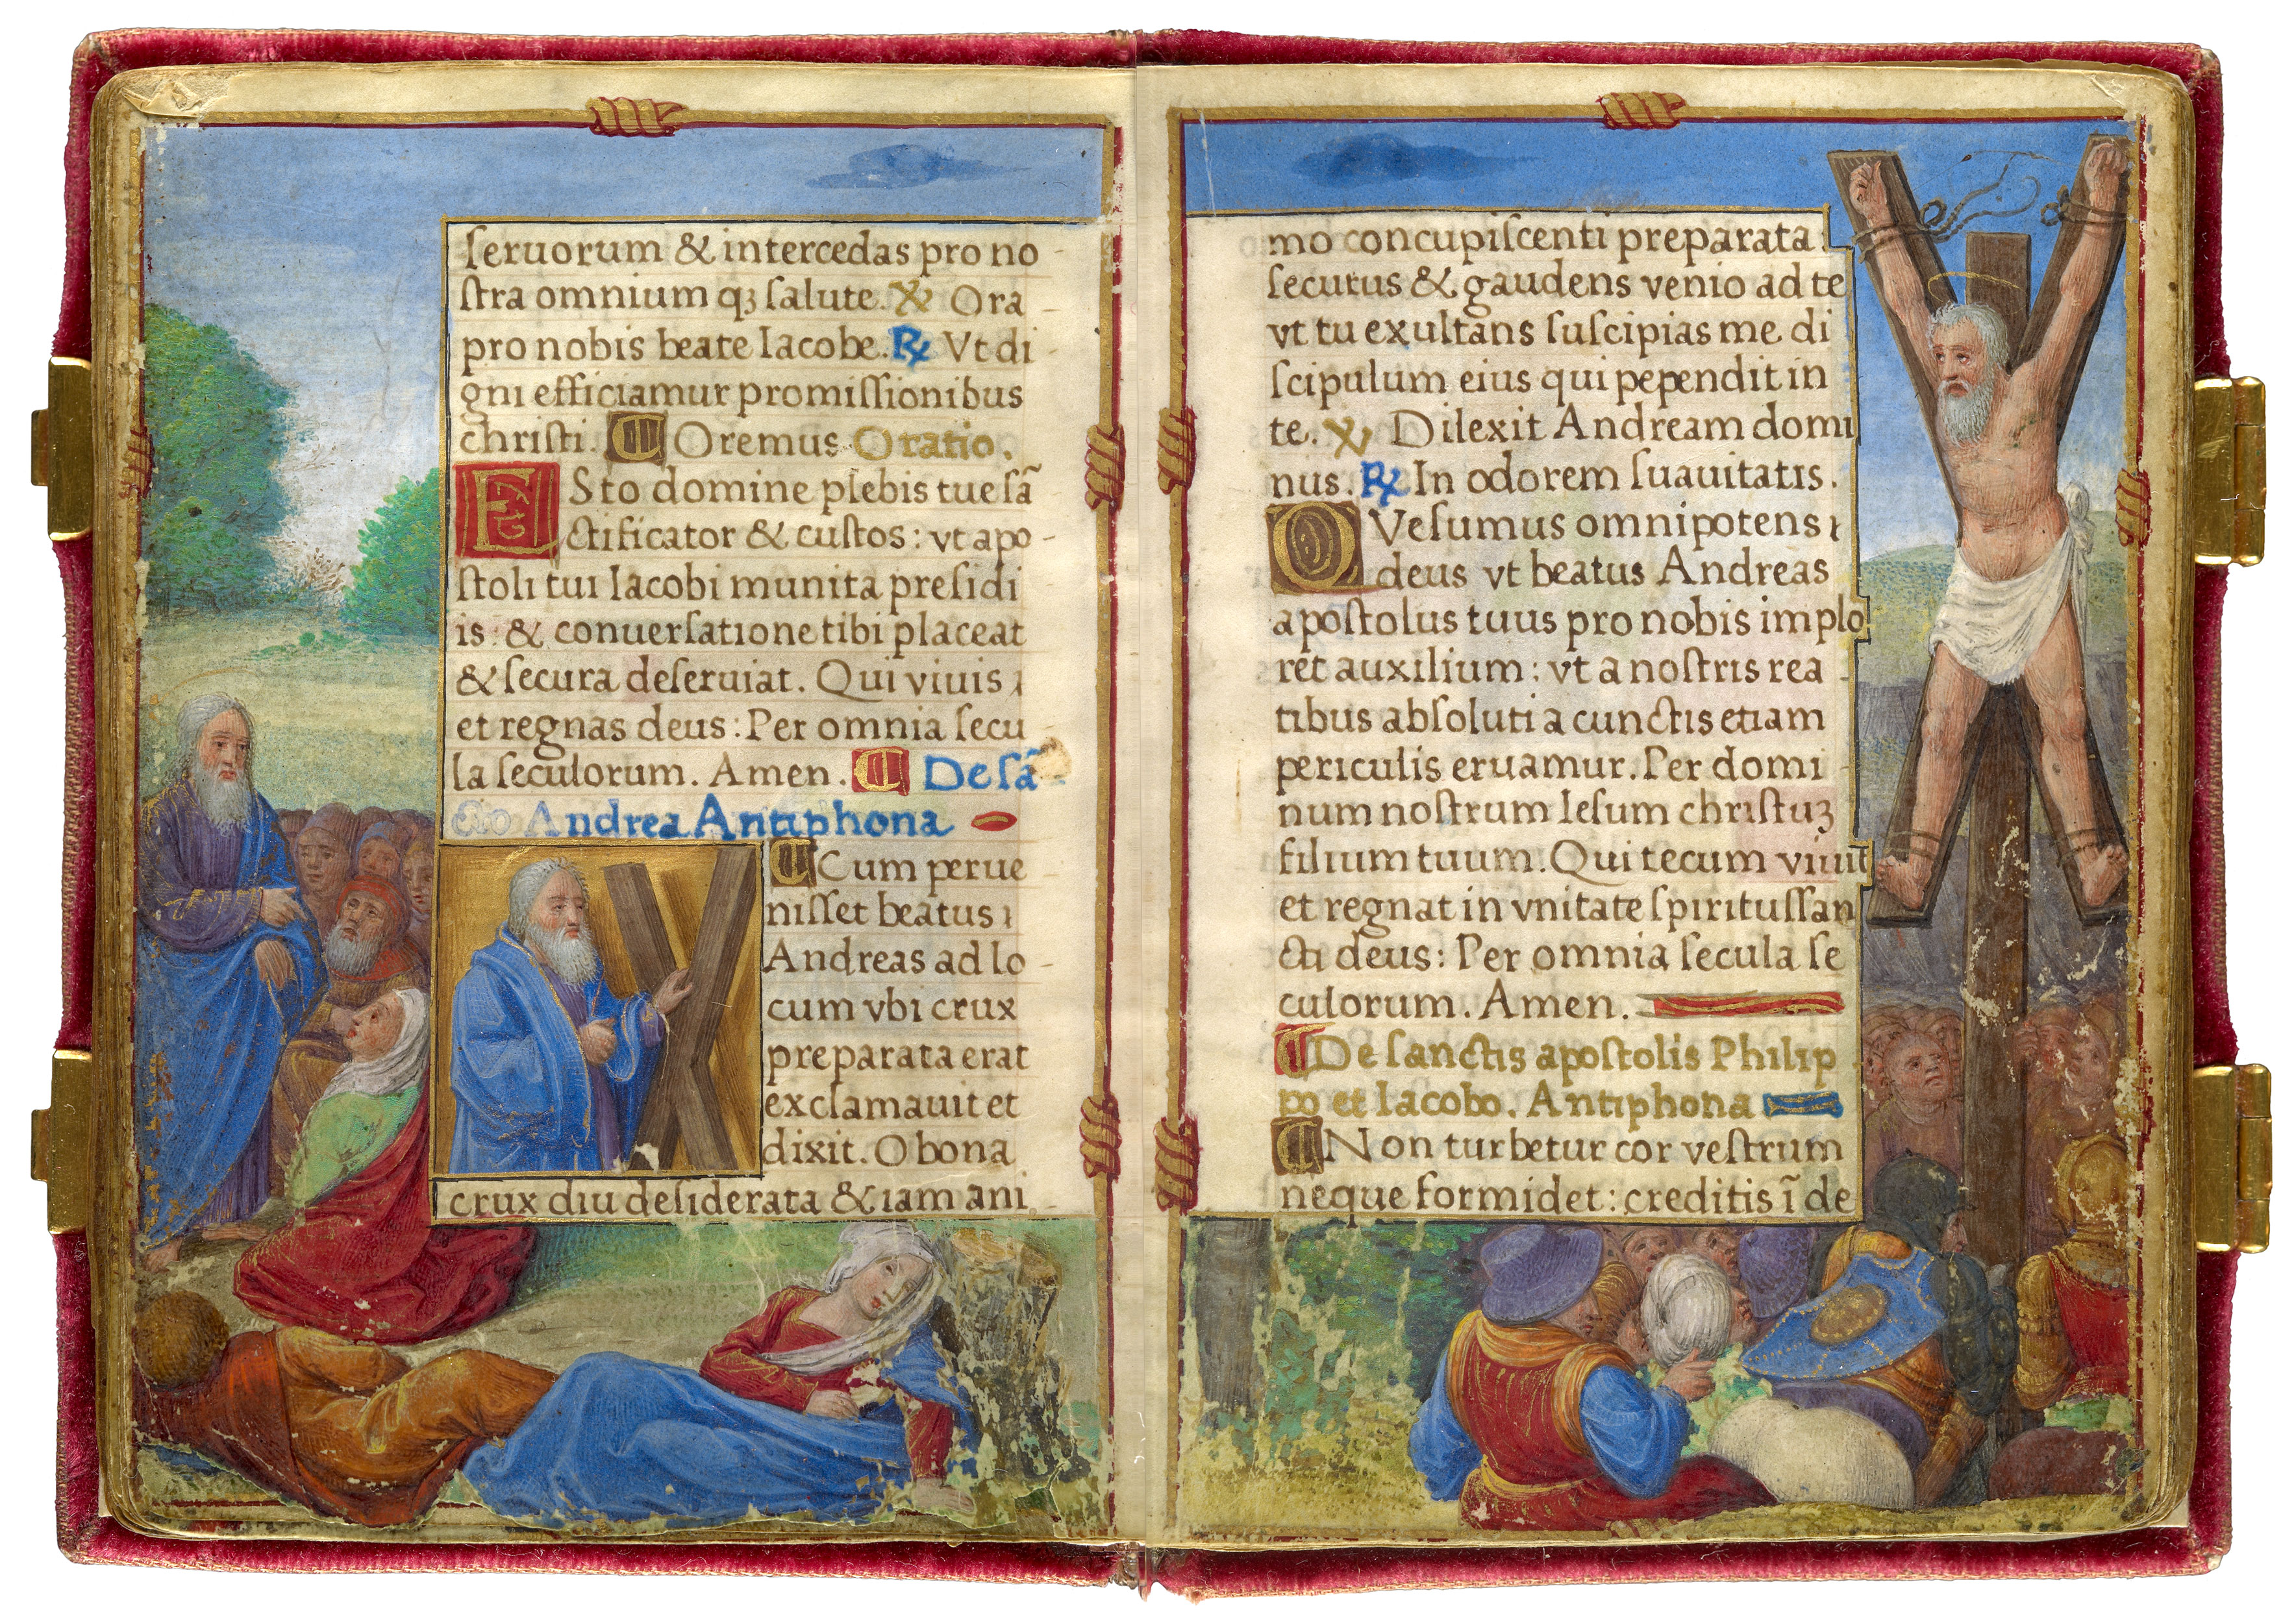 ſeruorum & intercedas pro no
ſtra omnium qꝫ ſalute. ℣ Ora
pro nobis beate Iacobe. ℟ Vt di
gni efficiamur promiſſionibus
chriſti. Oremus Oratio.
ESto domine plebis tue ſā
ctificator & cuſtos: vt apo
ſtoli tui Iacobi munita preſidi
is: & conuerſatione tibi placeat
& ſecura deſeruiat. Qui viuis
et regnas deus: Per omnia ſecu
la ſeculorum. Amen. De ſā
cto Andrea Antiphona
Cum perue
niſſet beatus
Andreas ad lo
cum vbi crux
preparata erat
exclamauit et
dixit. O bona
crux diu deſiderata & iam ani
mo concupiſcenti preparata:
ſecurus & gaudens venio ad te
vt tu exultans ſuſcipias me di
ſcipulum eius qui pependit in
te. ℣ Dilexit Andream domi
nus. ℟ In odorem ſuauitatis.
QVeſumus omnipotens
deus vt beatus Andreas
apoſtolus tuus pro nobis implo
ret auxilium: vt a noſtris rea
tibus abſoluti a cunctis etiam
periculis eruamur. Per domi
num noſtrum Ieſum chriſtuꝫ
filium tuum. Qui tecum viuit
et regnat in vnitate ſpirituſſan
cti deus: Per omnia ſecula ſe
culorum. Amen.
De ſanctis apoſtolis Philip
po et Iacobo. Antiphona
Non turbetur cor veſtrum
neque formidet: creditis ī de